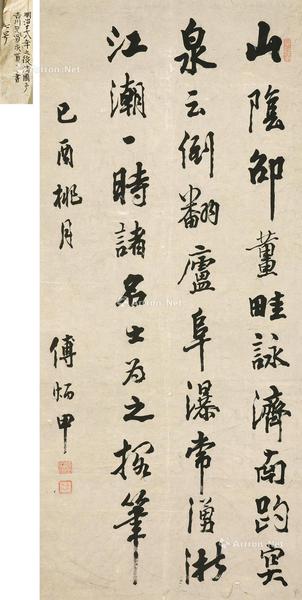 山陰邵董畦詠濟南趵突
泉云倒翻廬阜瀑常湧浙
江潮一時諸名士為之擱筆
己酉桃月
傅炳甲